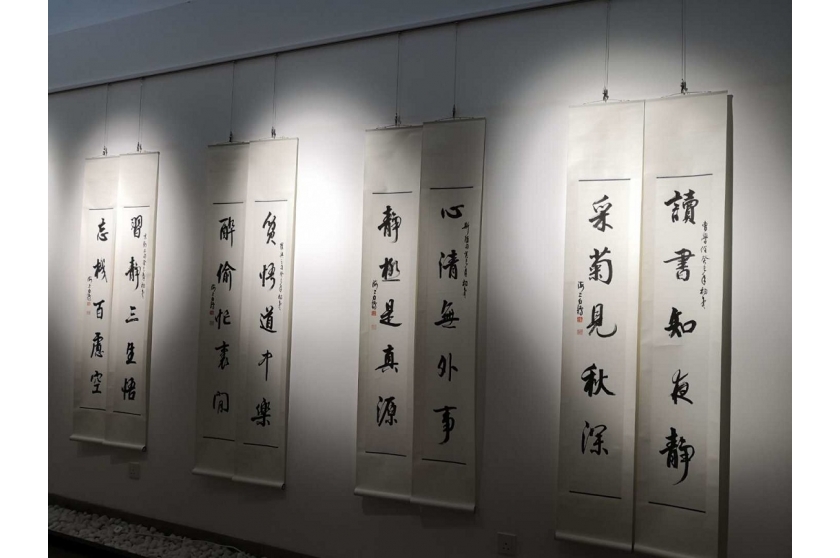 讀書知夜靜
采菊見秋深
心清無外事
靜極是真源
貧悟道中樂
醉偷忙裏閒
習靜三生悟
忘機百慮空